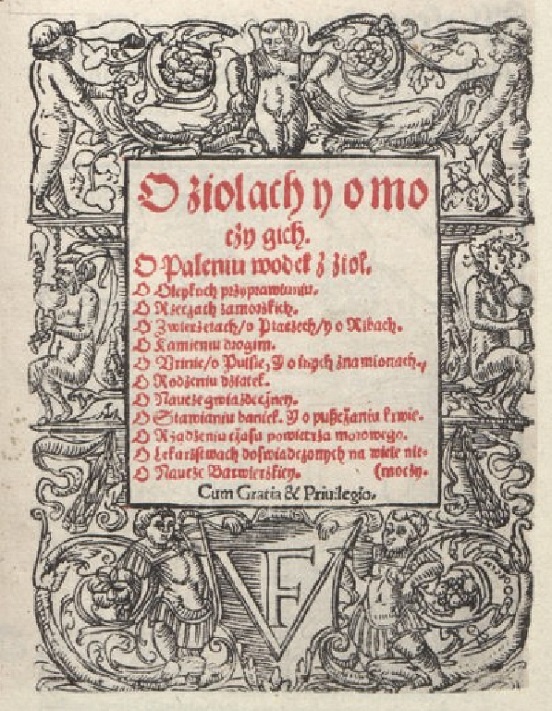 O ziolach y o mo
czy gich.
O Paleniu wodek z ziol.
O Oleykoch przyprawianiu.
O Rzeczach zamorskich.
O Zwierzetach/o Ptaczech/y o Ribach.
O Kamieniu drogim.
O Vrinie/o Pulsie, Y o inych znamionach.
O Rodzeniu dziatek.
O Nauce gwiazdeczney.
O Stawianiu baniek. Y o pußczaniu krwie.
O Rządzenia czasu powietrza morowego.
O Lekarstwach doswiadczonych na wiele nie-
O Nauce Barwierskiey. (moczy.
Cum Gratia & Priuilegio.
VF